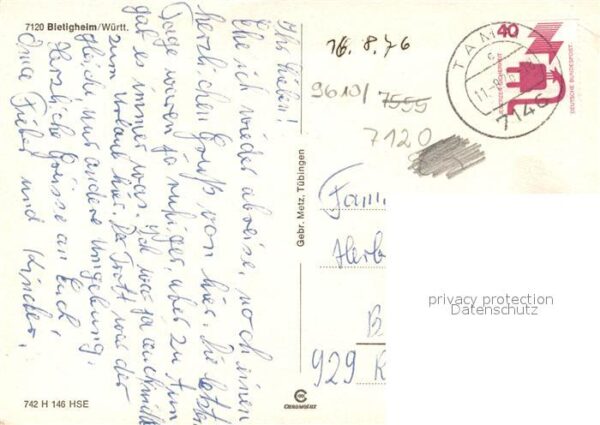 7120 Bietigheim/Württ.
16.8.76
9610/7555
7120
40
TAMM
7146
DEUTSCHE BUNDESPOST
Ihr Lieben!
Ehe ich wieder abreise, noch einen
herzlichen Gruß von hier. Die letzten
Tage waren ja ruhiger, aber zu tun
gab es immer was. Ich war ja auch nicht
zum Urlaub hier. Der Trott war der
gleiche nur andere Umgebung.
Herzliche Grüsse an Euch
Oma Fieber und Kinder.
Gebr. Metz, Tübingen
Fam.
Herb
B
929 K
privacy protection
Datenschutz
742 H 146 HSE